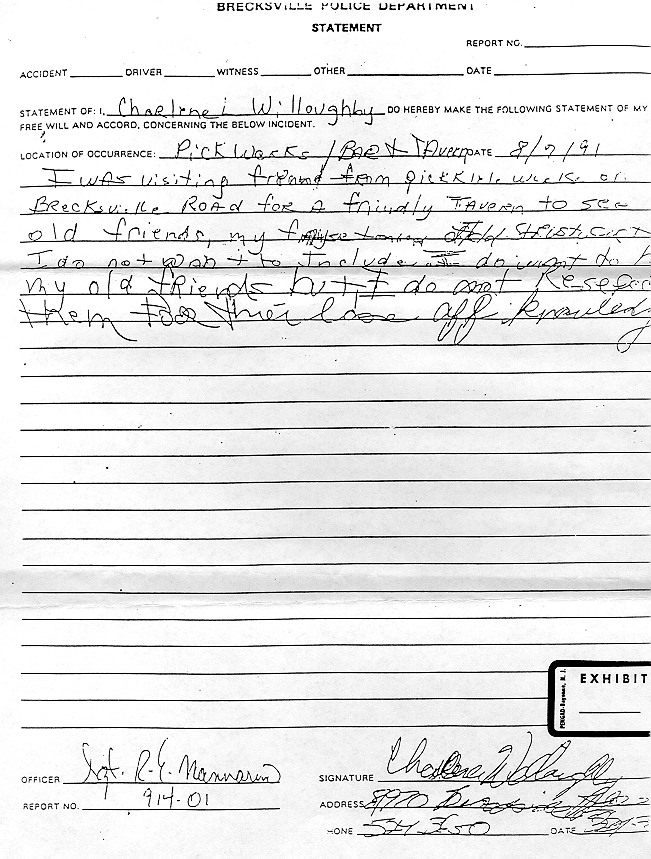 BRECKSVILLE POLICE DEPARTMENT
STATEMENT
REPORT NO.
ACCIDENT DRIVER WITNESS OTHER DATE
STATEMENT OF: I, Charlene i Willoughby DO HEREBY MAKE THE FOLLOWING STATEMENT OF MY
FREE WILL AND ACCORD, CONCERNING THE BELOW INCIDENT.
LOCATION OF OCCURRENCE: PickWacks / BAR & TAvern DATE 8/7/91
I WAS visiting friend from
BRecksville ROAD for A friendly TAvern to see
old friends, my
I do not want to Include. I do want to
my old friends but I do not Respec
them for thier lose off knowledg
EXHIBIT
PENGAD-Bayonne, N. J.
OFFICER Sgt. R. G. Mannarin
REPORT NO. 914-01
SIGNATURE Charlene Willoughby
ADDRESS 8970
HONE DATE